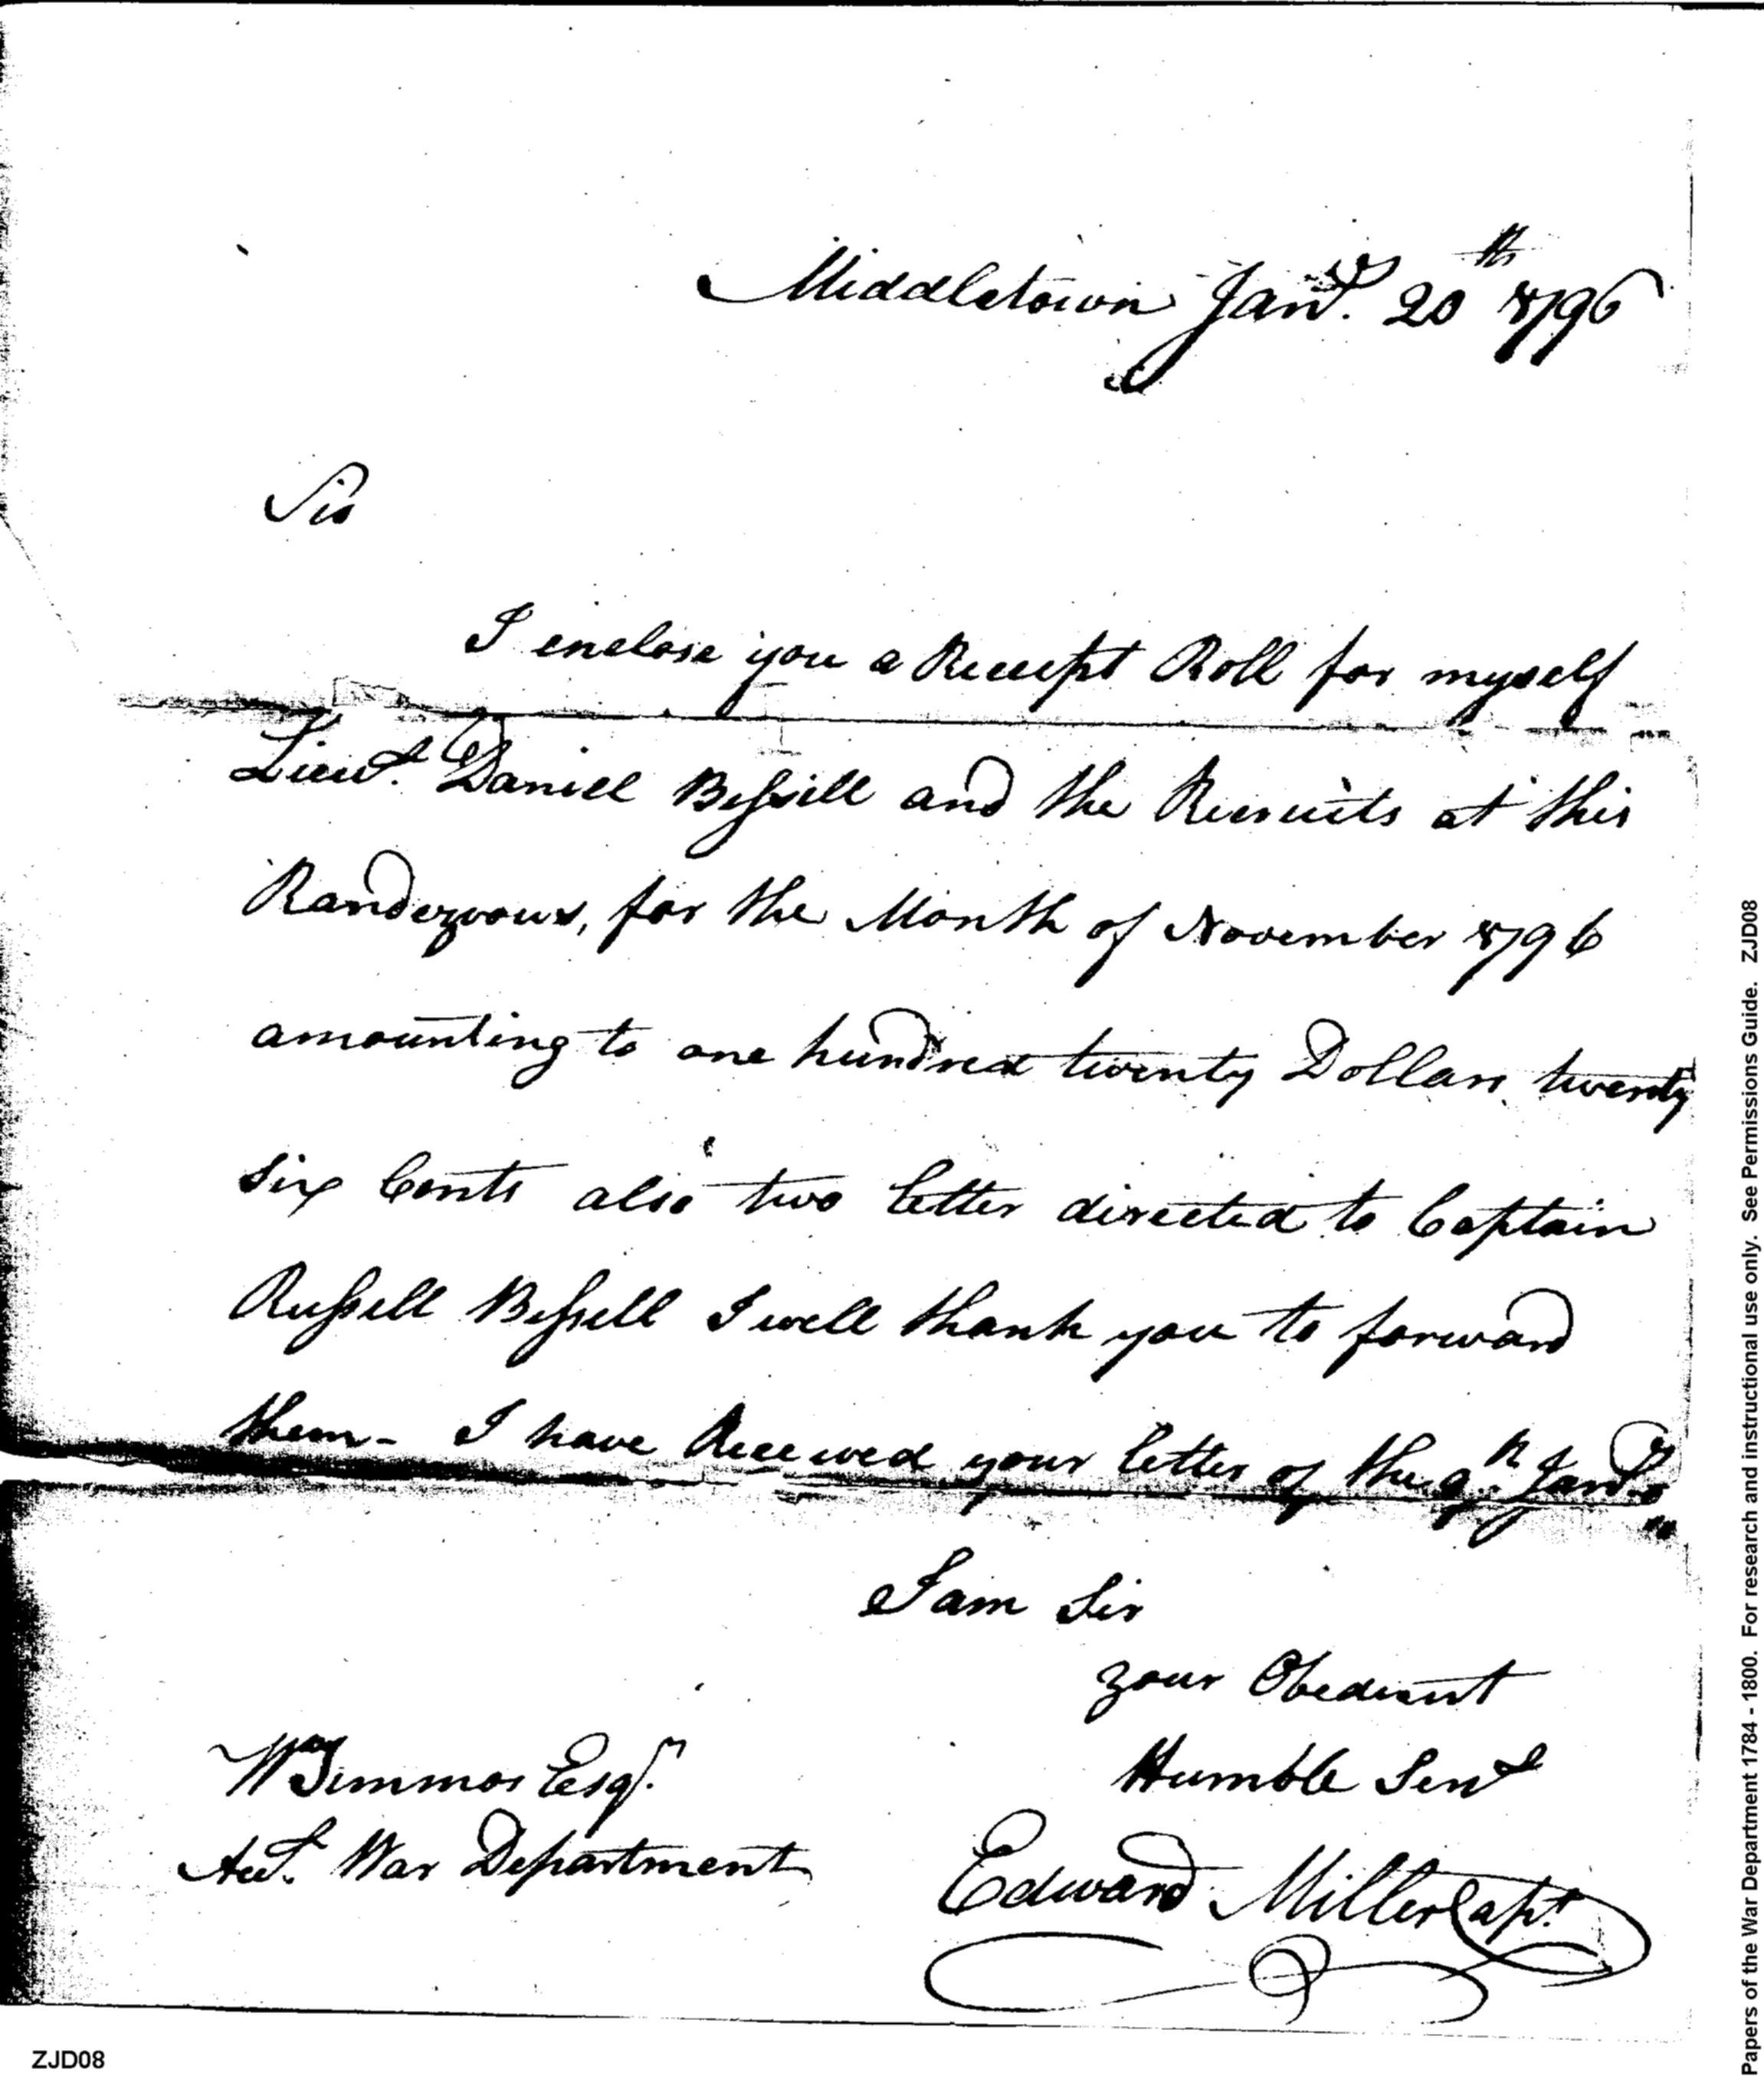 Middletown Jany. 20th 1796
Sir
I enclose you a Receipt Roll for myself
Lieut. Daniel Bissell and the Recruits at this
Randezvous, for the Month of November 1796
amounting to one hundred twenty Dollars twenty
six Cents also two letter directed to Captain
Russell Bissell I well thank you to forward
them - I have Received your letter of the 9th Jany.
I am Sir
your Obedient
Humble Servt
Wm Simmos Esqr.
Acct. War Department
Edward Miller Capt.
ZJD08
Papers of the War Department 1784 - 1800. For research and instructional use only. See Permissions Guide. ZJD08